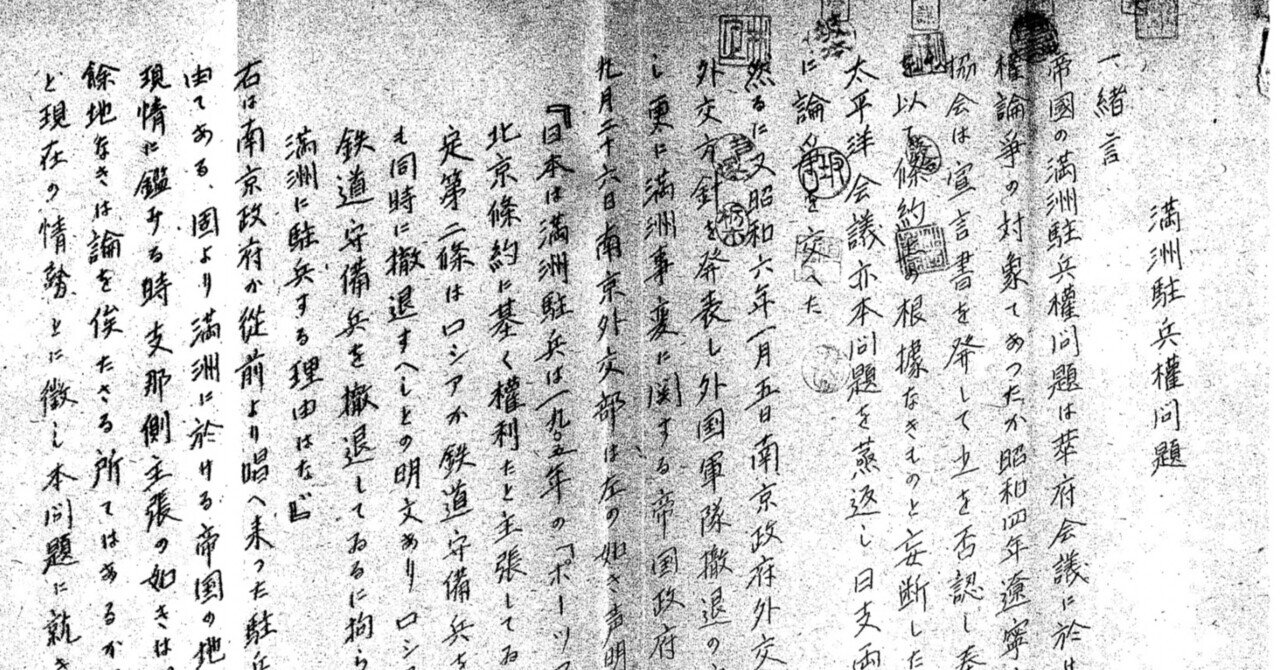 満洲駐兵權问題
一、緒言
帝國の満洲駐兵權问題は華府会議に於け
權論爭の対象てあつたか昭和四年遼寧
協会は宣言書を発して之を否認し
以て條約の根據なきものと妄断した
太平洋会議亦本问題を蒸返し日支両
に論爭を交へた
然るに又昭和六年一月五日南京政府外交
外交方針を発表し外国軍隊撤退の
し更に満洲事変に関する帝国政府
九月二十六日南京外交部は左の如き声明
『日本は満洲駐兵は一九〇五年の「ポーツ
北京條約に基く權利たと主張してゐ
定第二條はロシアか鉄道守備兵を
も同時に撤退すへしとの明文ありロシ
鉄道守備兵を撤退してゐるに拘ら
満洲に駐兵する理由はな』
右は南京政府か從前より唱へ来つた駐兵
由てある、固より満洲に於ける帝国の地
現情に鑑みる時支那側主張の如きは
餘地なきは論を俟たさる所てはあるか
と現在の情勢とに徴し本问題に就き